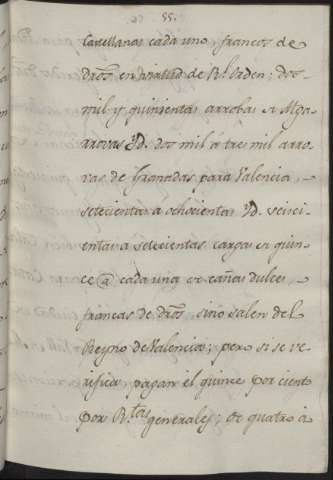 55.
Castellanas cada uno, francos de
dros. en virtud de Rl. orden; dos
mil y quinientas arrobas de Alga-
rrovas Yd. dos mil â tres mil arro-
vas de Granadas para Valencia,
setecientas a ochocientas Yd. seisci-
entas a setecientas cargas de quin-
ce @ cada una de cañas dulces,
francas de dros. sino salen del
Reyno de Valencia; pero si se ve-
rifica, pagan el quince por ciento
por R.tas generales; de quatro â